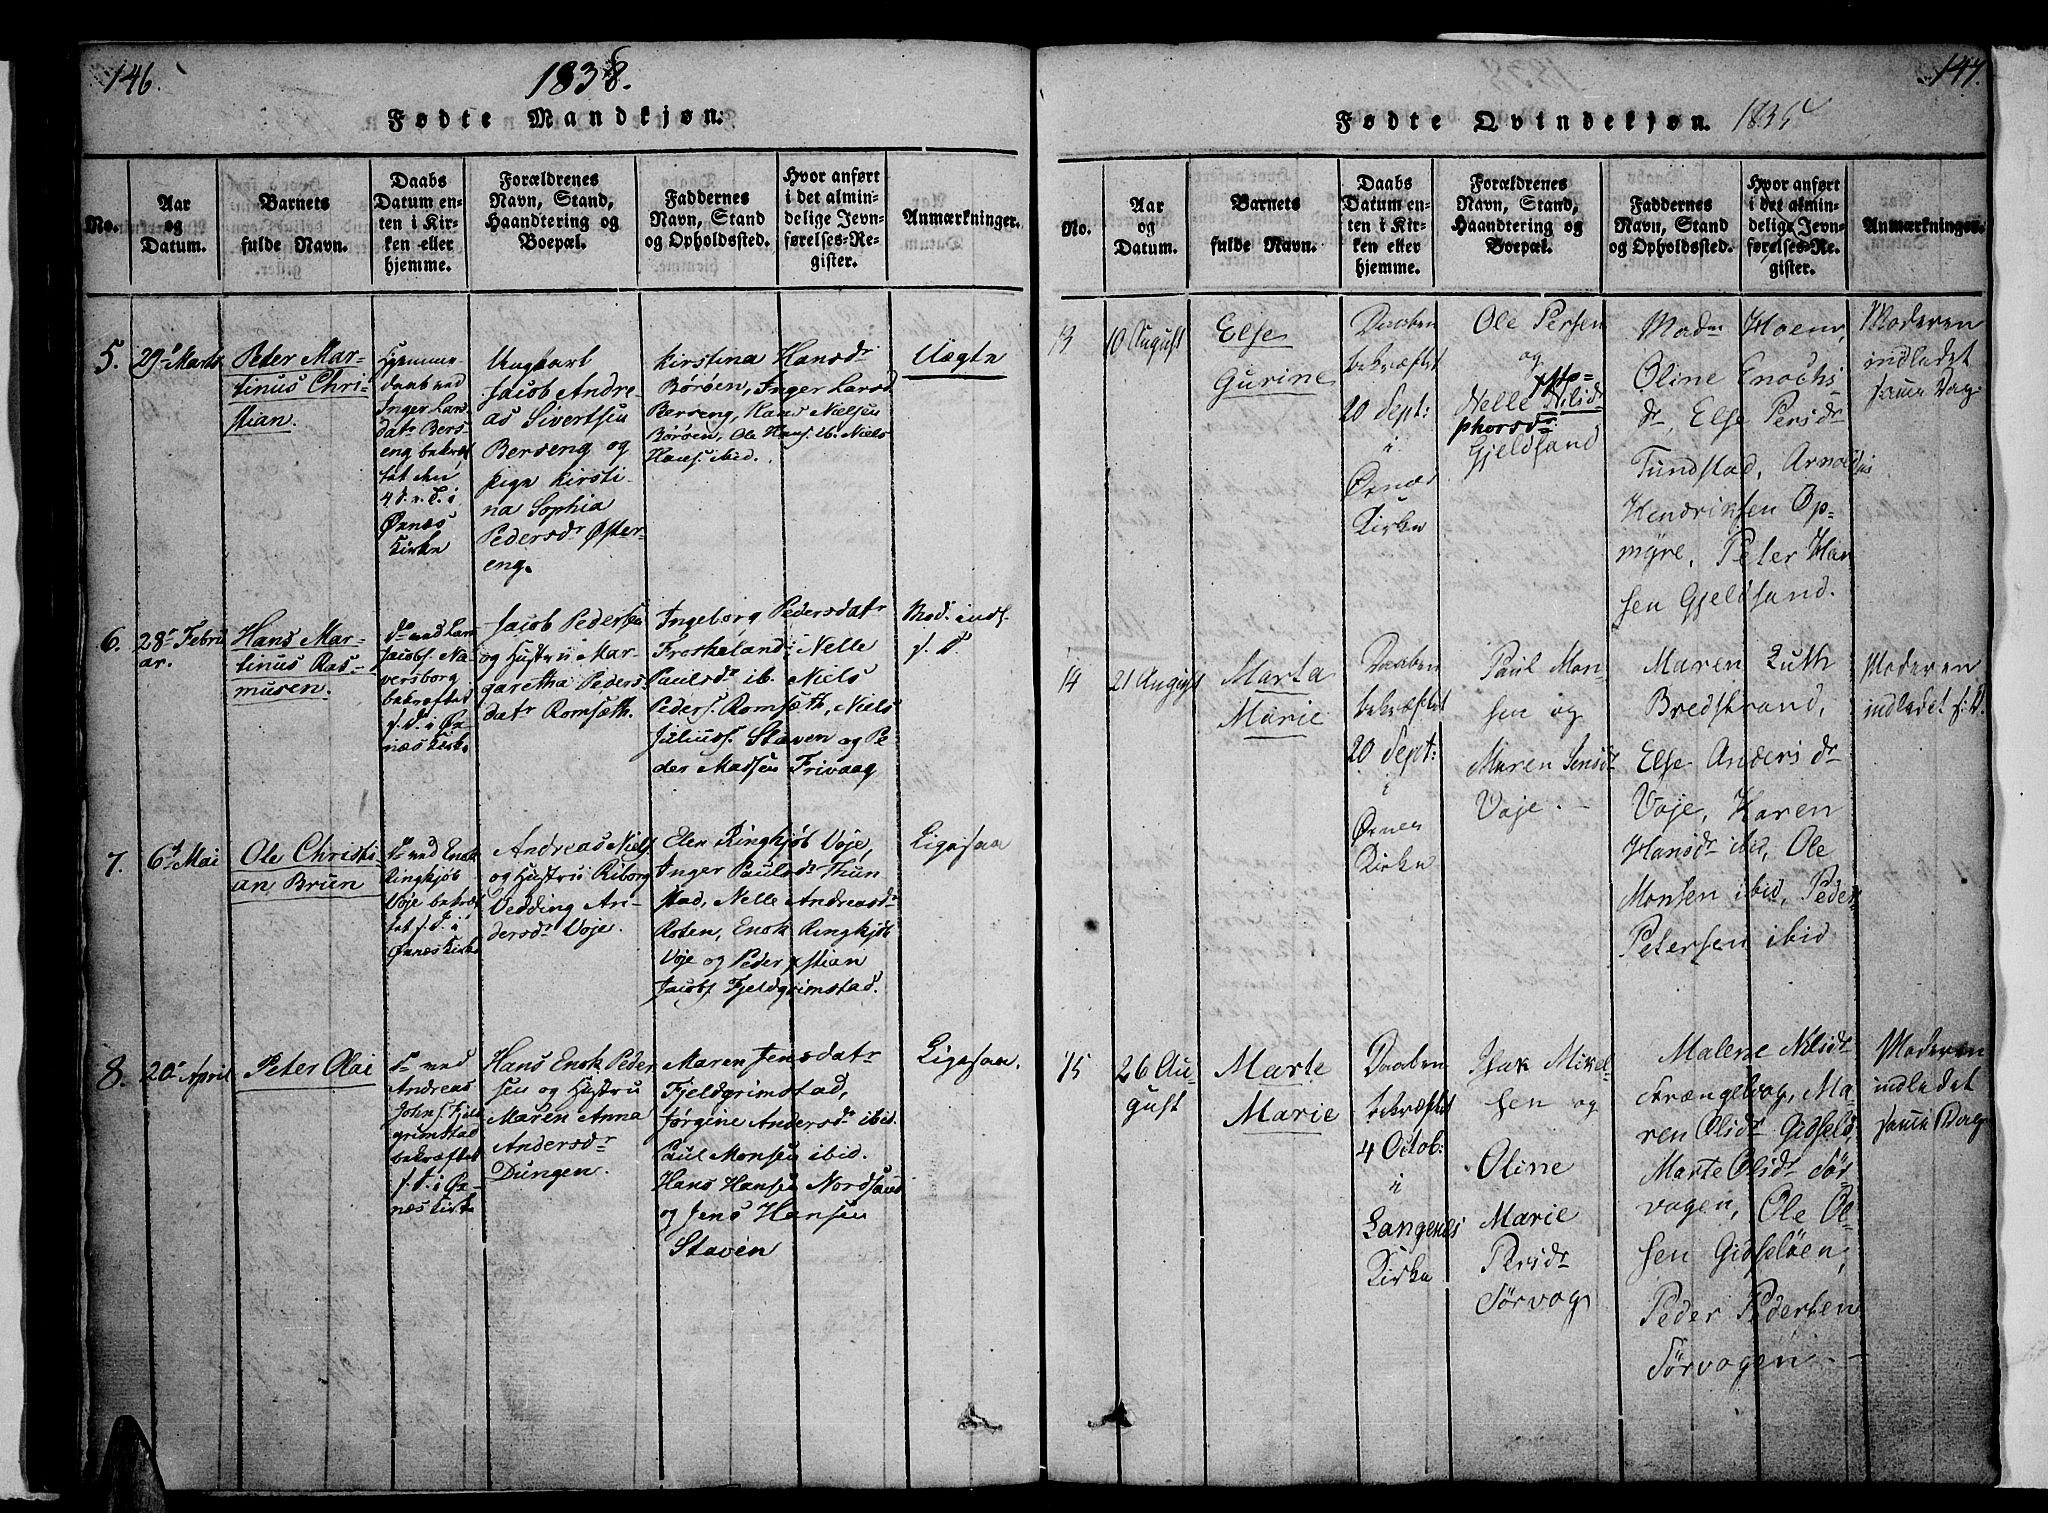 146.
1838.
Fødte Mandkjøn.
No.
Aar
og
Datum.
Barnets
fulde Navn.
Daabs
Datum en-
ten i Kir-
ken eller
hjemme.
Forældrenes
Navn, Stand,
Haandtering og
Boepæl.
Faddernes
Navn, Stand
og Opholdssted.
Hvor anført
i det almin-
delige Jevn-
førelses-Re-
gister.
Anmærkninger.
5.
29de Marts
Peter Mar-
tinus Chri-
stian.
Hjemme-
daab ved
Inger Lars-
datr Bers-
eng bekræf-
tet den
i
Øxnæs
Kirke
Ungkarl
Jacob Andre-
as Sivertsen
Berseng og
pige Kirsti-
na Sophia
Pedersdr Øster-
eng.
Kirstina Hansdr
Børøen, Inger Larsd
Berseng, Hans Nielsen
Børøen, Ole Hans. ib. Niels
Hans. ibid.
Uægte
6.
28de Febru
ar.
Hans Mar-
tinus Ras-
musen.
do med Lars
Jacobs. Na-
versborg
bekræftet
s. D. i Øx-
næs Kirke
Jacob Pedersen
og Hustru Mar-
garetha Peders-
datr Romsæth.
Ingeborg Pedersdatr
Freskeland, Nelle
Paulsdr ib. Niels
Peders. Romsæth, Niels
Juliuss. Staven og Pe-
der Madsen Frivaag
Mod. indl.
s. D.
7.
6te Mai
Ole Christi-
an Brun
do med Enok
Ringkjøb
Voje bekræf-
tet s. D. i
Øxnæs Kirke
Andreas Niels.
og Hustru Riborg
Vedding An-
dersdr Voje.
Elen Ringkjøb Voje,
Inger Paulsdr Thun-
stad, Nelle Andreasdr
Roten, Enok Ringkjøb
Voje og Peder xstian
Jacobs Fjeldgrimstad.
Ligesaa
8.
20de April
Peter Olai
do med
Andreas
Johns. Fjeld
grimstad
bekræftet
s. D. i Øx-
næs Kirke
Hans Enok Peder
sen og Hustru
Maren Anna
Andersdr
Dungen.
Maren Jensdatr
Fjeldgrimstad,
Jørgine Andersdr ibid.
Paul Monsen ibid.
Hans Hansen Nordsand
og Jens Hansen
Staven
Ligesaa.
147.
Fødte Qvindekjøn.
No.
Aar
og
Datum.
Barnets
fulde Navn.
Daabs
Datum en-
ten i Kir-
ken eller
hjemme.
Forældrenes
Navn, Stand,
Haandtering og
Boepæl.
Faddernes
Navn, Stand
og Opholdssted.
Hvor anført
i det almin-
delige Jevn-
førelses-Re-
gister.
Anmærkninger.
13
10 August
Else
Gurine
Daaben
bekræftet
20 Sept:
i
Øxnæs
Kirke
Ole Persen
og
Nelle Nilsdr
phorsdr
Gjeldsand
Madm Hoem,
Oline Enochs
dr, Else Persdr
Tundstad, Arnoldus
Hendriksen Op-
myre, Peter Han
sen Gjeldsand.
Moderen
indledet
samme Dag
14
21 August
Marta
Marie
Daaben
bekræftet
20 Sept:
i
Øxnes
Kirke
Paul Mon-
sen og
Maren Jensdr
Voje. —
Maren Luth
Bredstrand,
Else Anders dr
Voje, Karen
Hansdr ibid, Ole
Monsen ibid, Peder
Petersen ibid
Moderen
indledet s. D.
15
26 Au-
gust
Marte
Marie
Daaben
bekræftet
4 Octob:
i
Langenes
Kirke
Isak Mikel-
sen og
Oline
Marie
Persdr
Sørvog
Malene Nilsdr
Strængelvog, Ma-
ren Olsdr Gidselø,
Marte Olsdr Sør-
vogen, Ole Ol-
sen Gidseløen,
Peder Pedersen
Sørvogen. —
Moderen
indledet
samme Dag